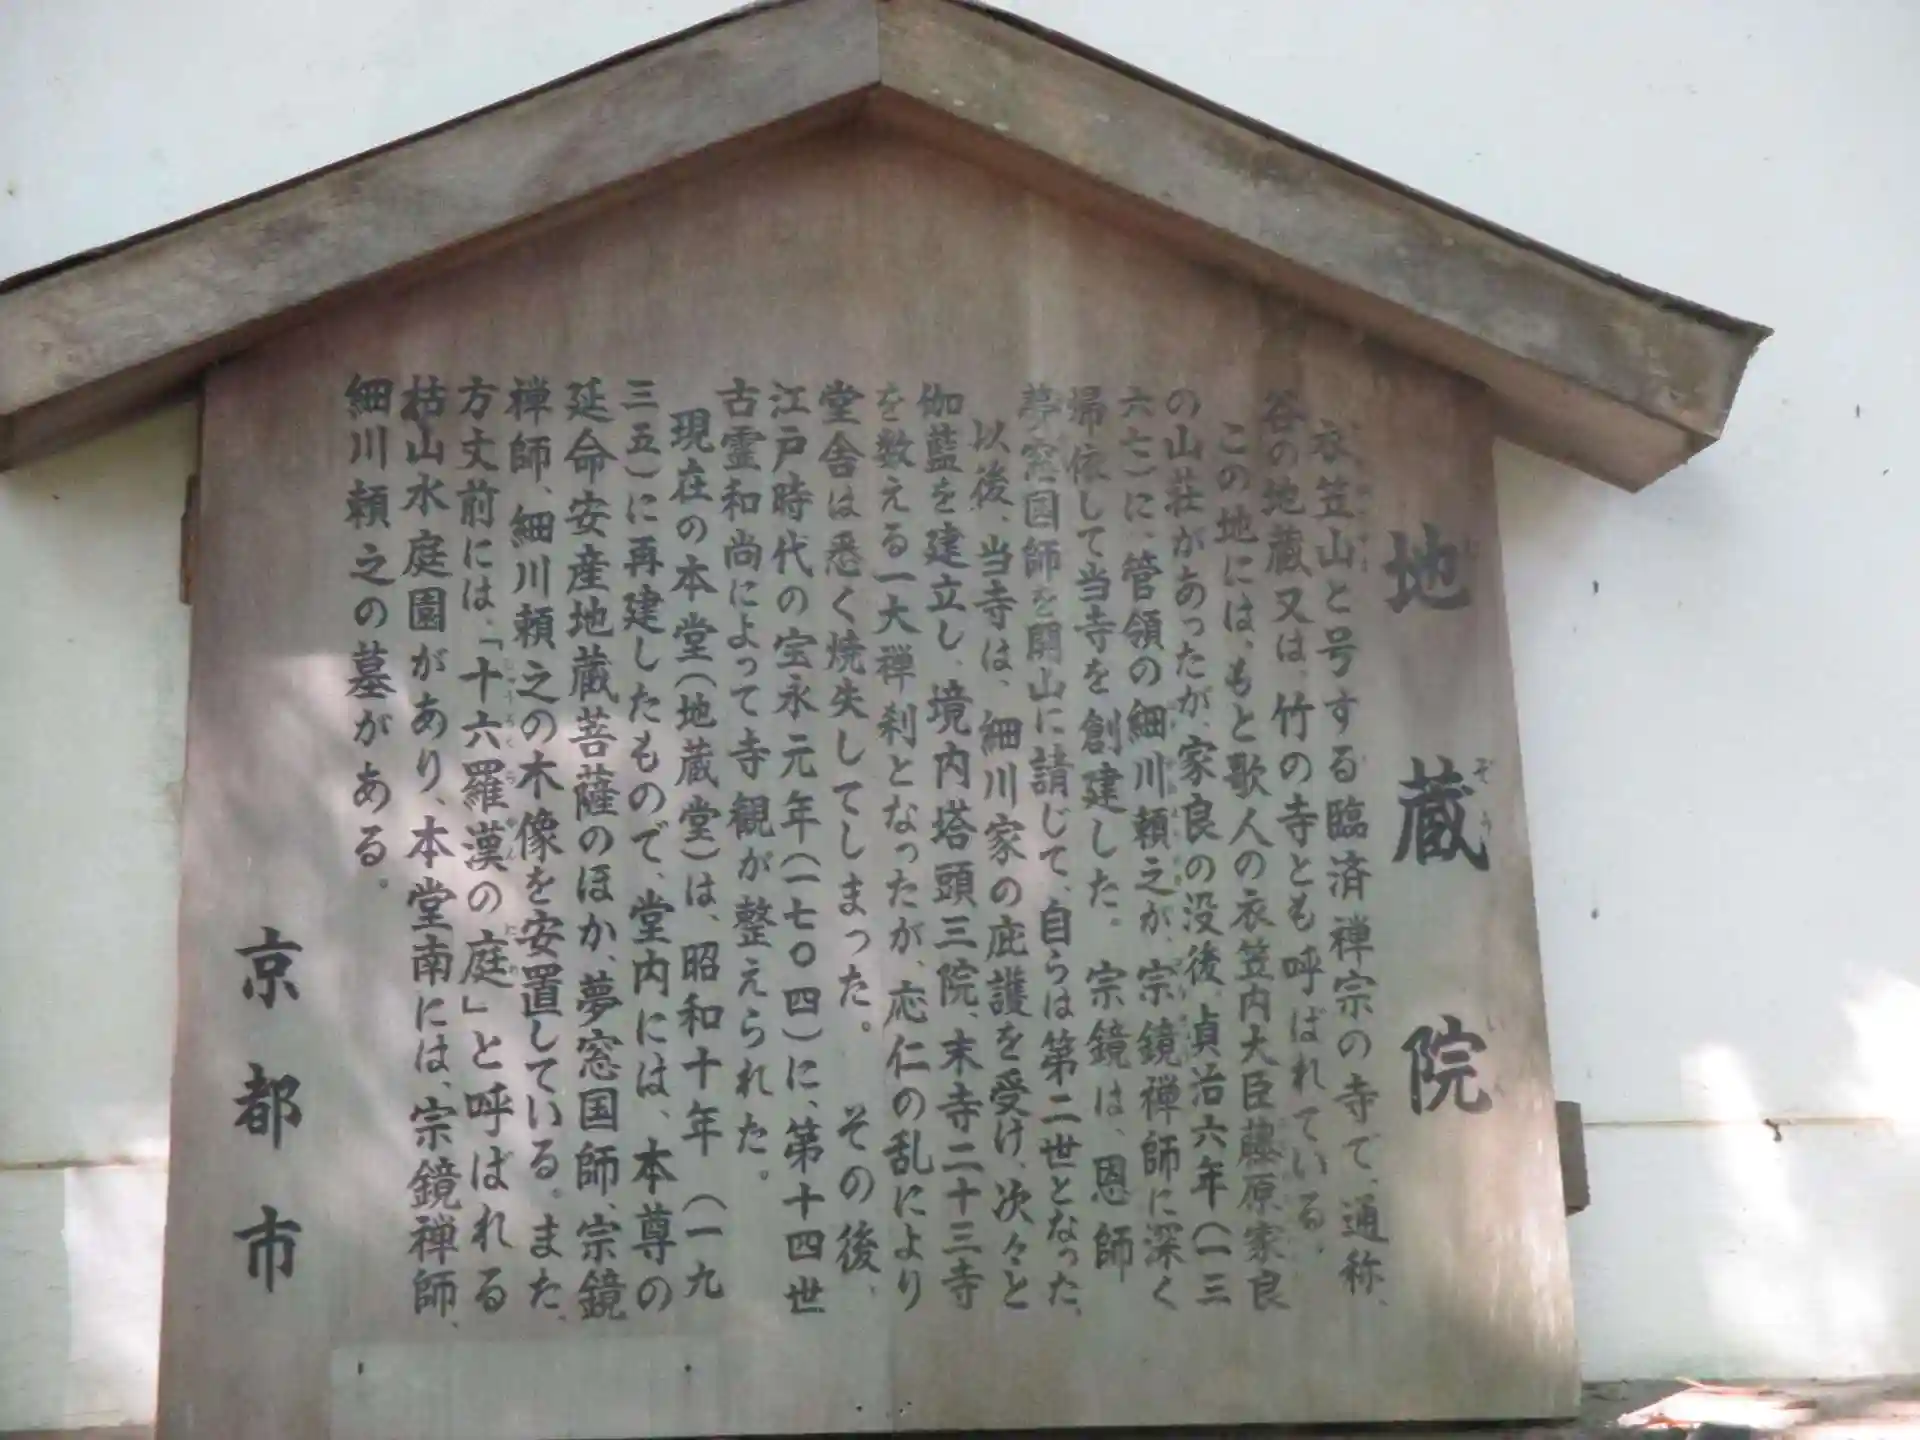 地蔵院
衣笠山と号する臨済禅宗の寺で、通称、
谷の地蔵又は、竹の寺とも呼ばれている。
この地には、もと歌人の衣笠内大臣藤原家良
の山荘があったが、家良の没後、貞治六年(一三
六七)に、管領の細川頼之が、宗鏡禅師に深く
帰依して当寺を創建した。宗鏡は、恩師
夢窓国師を開山に請じて、自らは第二世となった。
以後、当寺は、細川家の庇護を受け、次々と
伽藍を建立し、境内塔頭三院、末寺二十三寺
を数える一大禅刹となったが、応仁の乱により
堂舎は悉く焼失してしまった。その後、
江戸時代の宝永元年(一七〇四)に、第十四世
古霊和尚によって寺観が整えられた。
現在の本堂(地蔵堂)は、昭和十年(一九
三五)に再建したもので、堂内には、本尊の
延命安産地蔵菩薩のほか、夢窓国師、宗鏡
禅師、細川頼之の木像を安置している。また、
方丈前には、「十六羅漢の庭」と呼ばれる
枯山水庭園があり、本堂南には、宗鏡禅師、
細川頼之の墓がある。
京都市